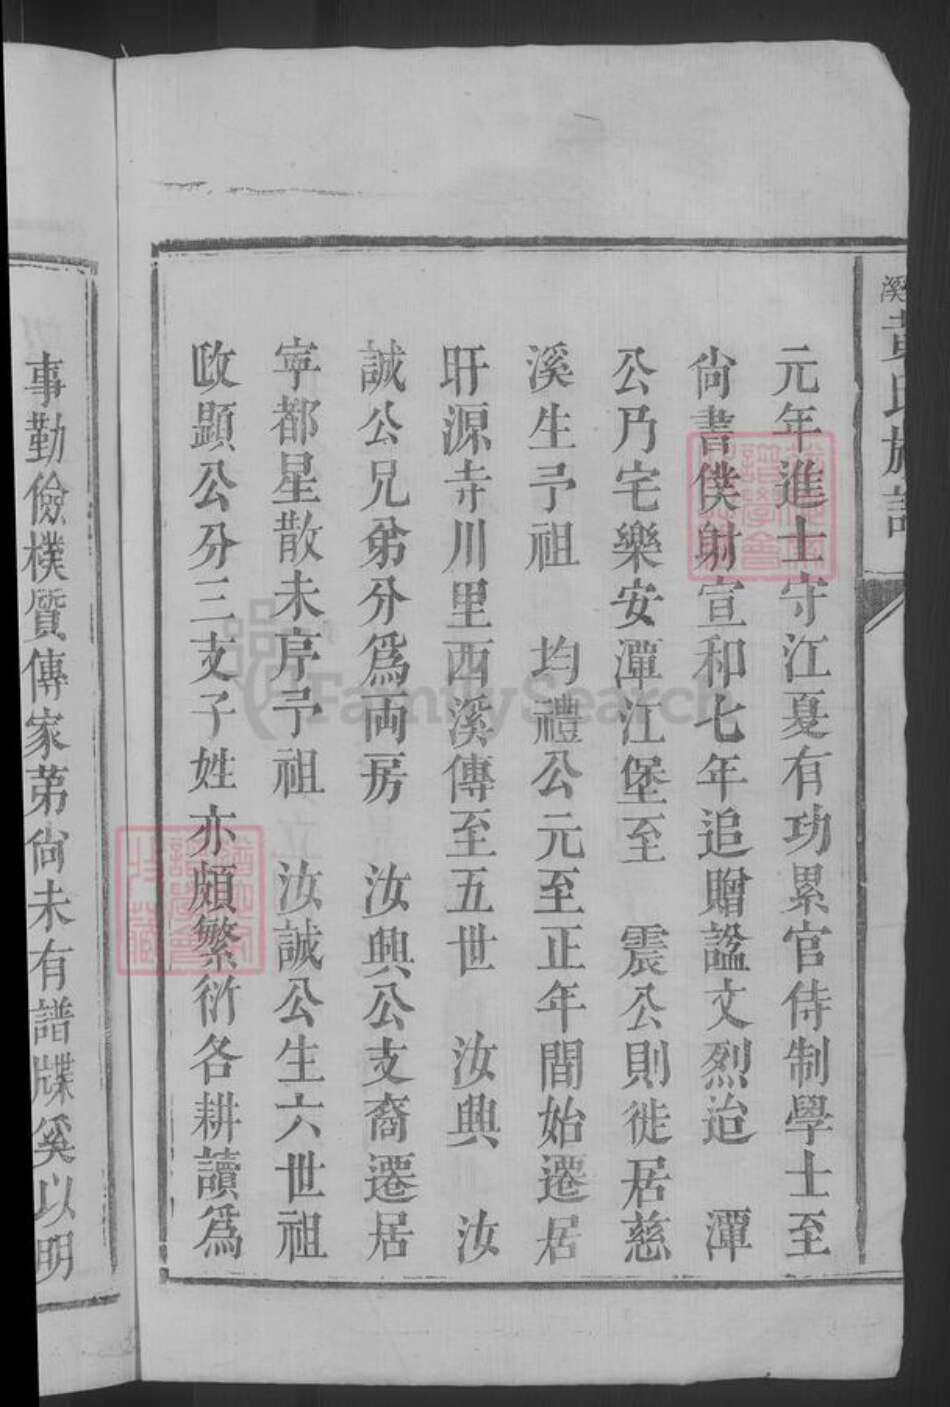 溪黃氏族譜
元年進士守江夏有功累官侍制學士至
尙書僕射宣和七年追贈謚文烈迨　潭
公乃宅樂安潭江堡至　震公則徙居慈
溪生予祖　均禮公元至正年間始遷居
旰源寺川里西溪傳至五世　汝興　汝
誠公兄弟分爲両房　汝興公支裔遷居
寕都星散未序予祖　汝誠公生六世祖
政顕公分三支子姓亦頗繁衍各耕讀爲
事勤儉樸質傳家第尙未有譜牒奚以明
FamilySearch